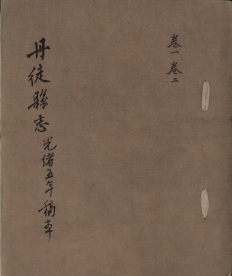 卷一卷二
丹徒縣志光緒五年摘本